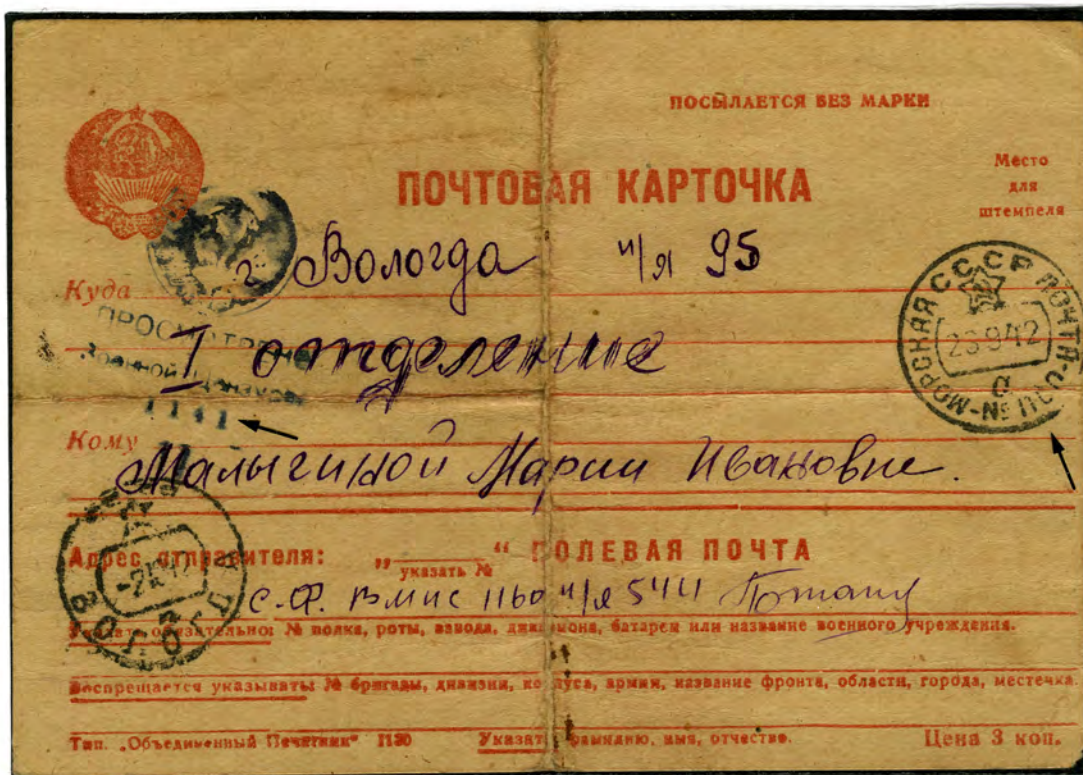 ПОСЫЛАЕТСЯ БЕЗ МАРКИ
ПОЧТОВАЯ КАРТОЧКА
Место
для
штемпеля
Куда г. Вологда п/я 95
ПРОСМОТРЕНО
Военной Цензурой
1141
I отделение
МОРСКАЯ СССР ПОЧТА
23 9 42
а
Кому
Малыгиной Марии Ивановне.
ВОЛОГДА
-2 42
Адрес отправителя: „ “ ПОЛЕВАЯ ПОЧТА
указать №
С.Ф. ВМПС 1160 п/я 5411
Указать обязательно: № полка, роты, взвода, дивизиона, батареи или название военного учреждения.
Воспрещается указывать № бригады, дивизии, корпуса, армии, название фронта, области, города, местечка.
Тип. „Объединенный Печатник“ 1130 Указать фамилию, имя, отчество. Цена 3 коп.